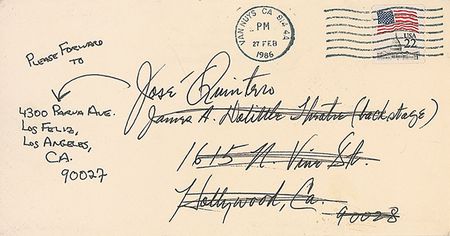 VAN NUYS CA 914 44
PM
27 FEB
1986
USA
22
PLEASE FORWARD
TO
4300 PARVA AVE.
LOS FELIZ,
LOS ANGELES,
CA.
90027
José Quintero
James A. Dolittle Theatre (backstage)
1615 N. Vine St.
Hollywood, Ca.
90028